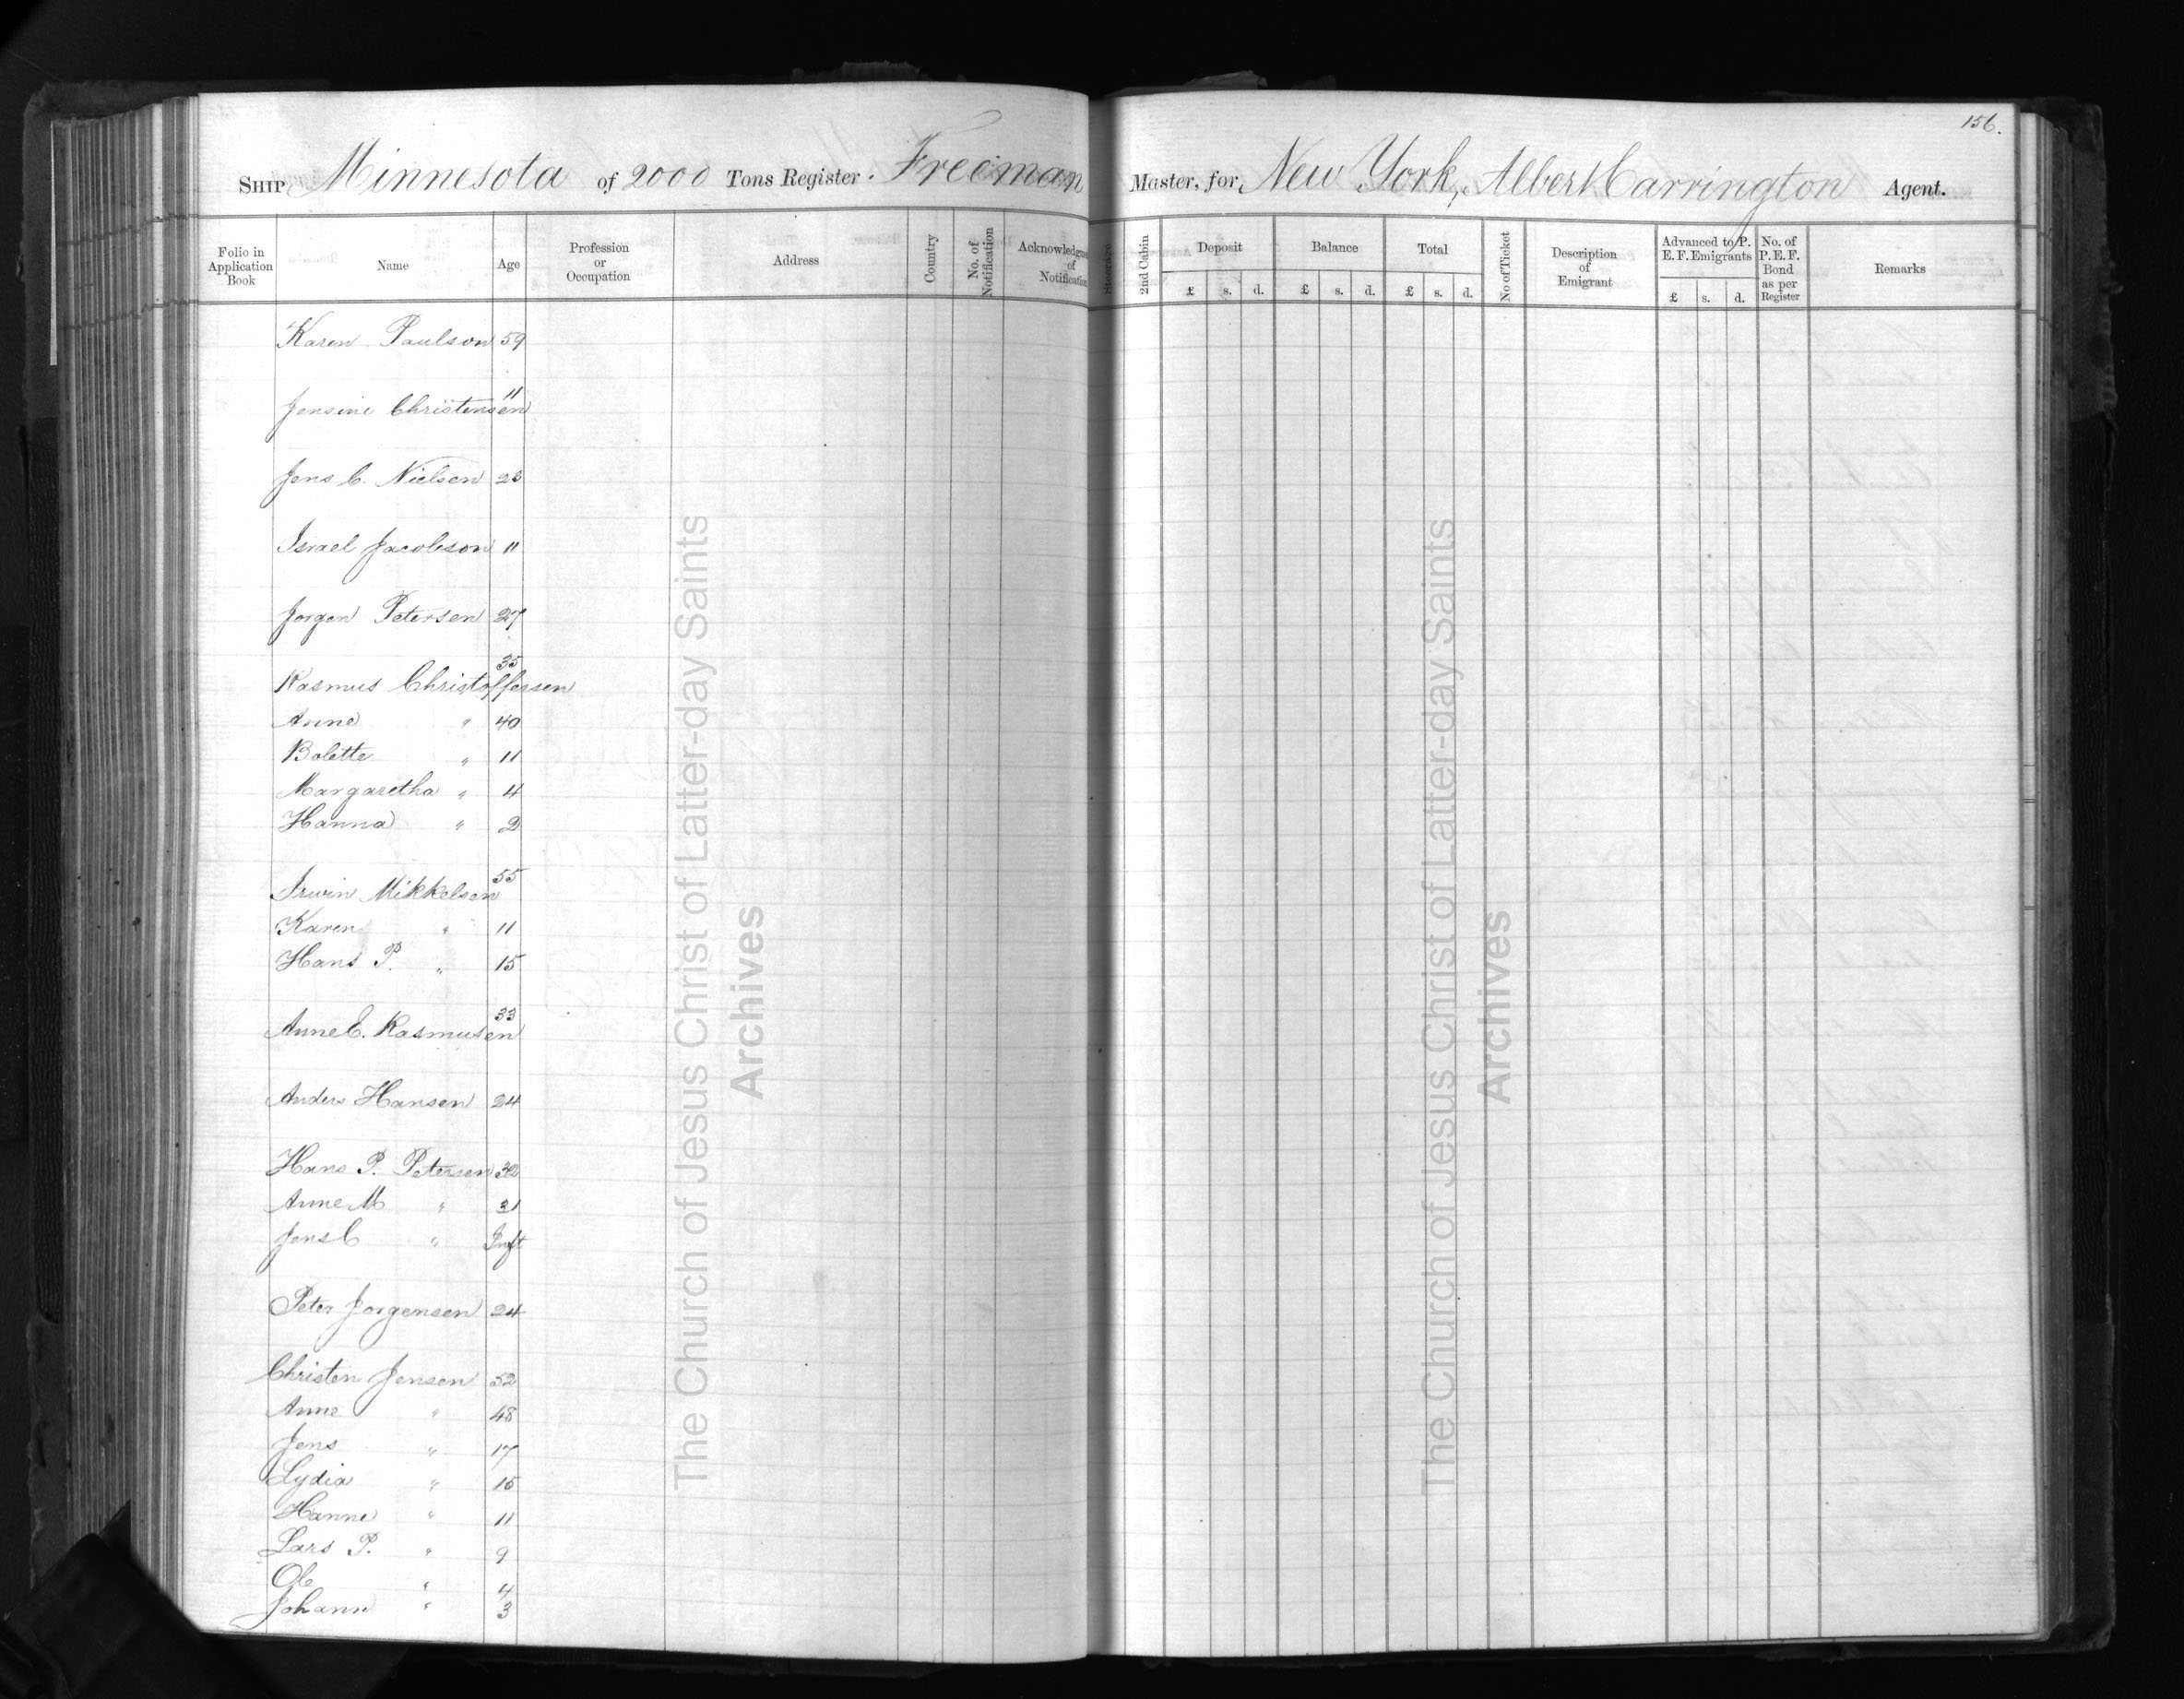 156.
Ship Minnesota of 2000 Tons Register. Freeman Master, for New York, Albert Carrington Agent.
Folio in Application Book
Name
Age
Profession or Occupation
Address
Country
No. of Notification
Acknowledgment of Notification
Steerage
2nd Cabin
Deposit £ s. d.
Balance £ s. d.
Total £ s. d.
No of Ticket
Description of Emigrant
Advanced to P. E. F. Emigrants £ s. d.
No. of P. E. F. Bond as per Register
Remarks
Karen Paulson 59
Jensine Christensen 11
Jens C. Nielsen 23
Israel Jacobson 11
Jorgen Petersen 27
Rasmus Christoffersen 35
Anne " 40
Bolette " 11
Margaretha " 4
Hanna " 2
Irwin Mikkelson 55
Karen " 11
Hans P. " 15
Anne E. Rasmusen 33
Anders Hansen 24
Hans P. Petersen
Anne M " 31
Jens C " Inft
Peter Jorgensen 24
Christen Jensen 52
Anne " 48
Jens " 17
Lydia " 15
Hanne " 11
Lars P. " 9
Ole " 4
Johann " 3
The Church of Jesus Christ of Latter-day Saints
Archives
The Church of Jesus Christ of Latter-day Saints
Archives